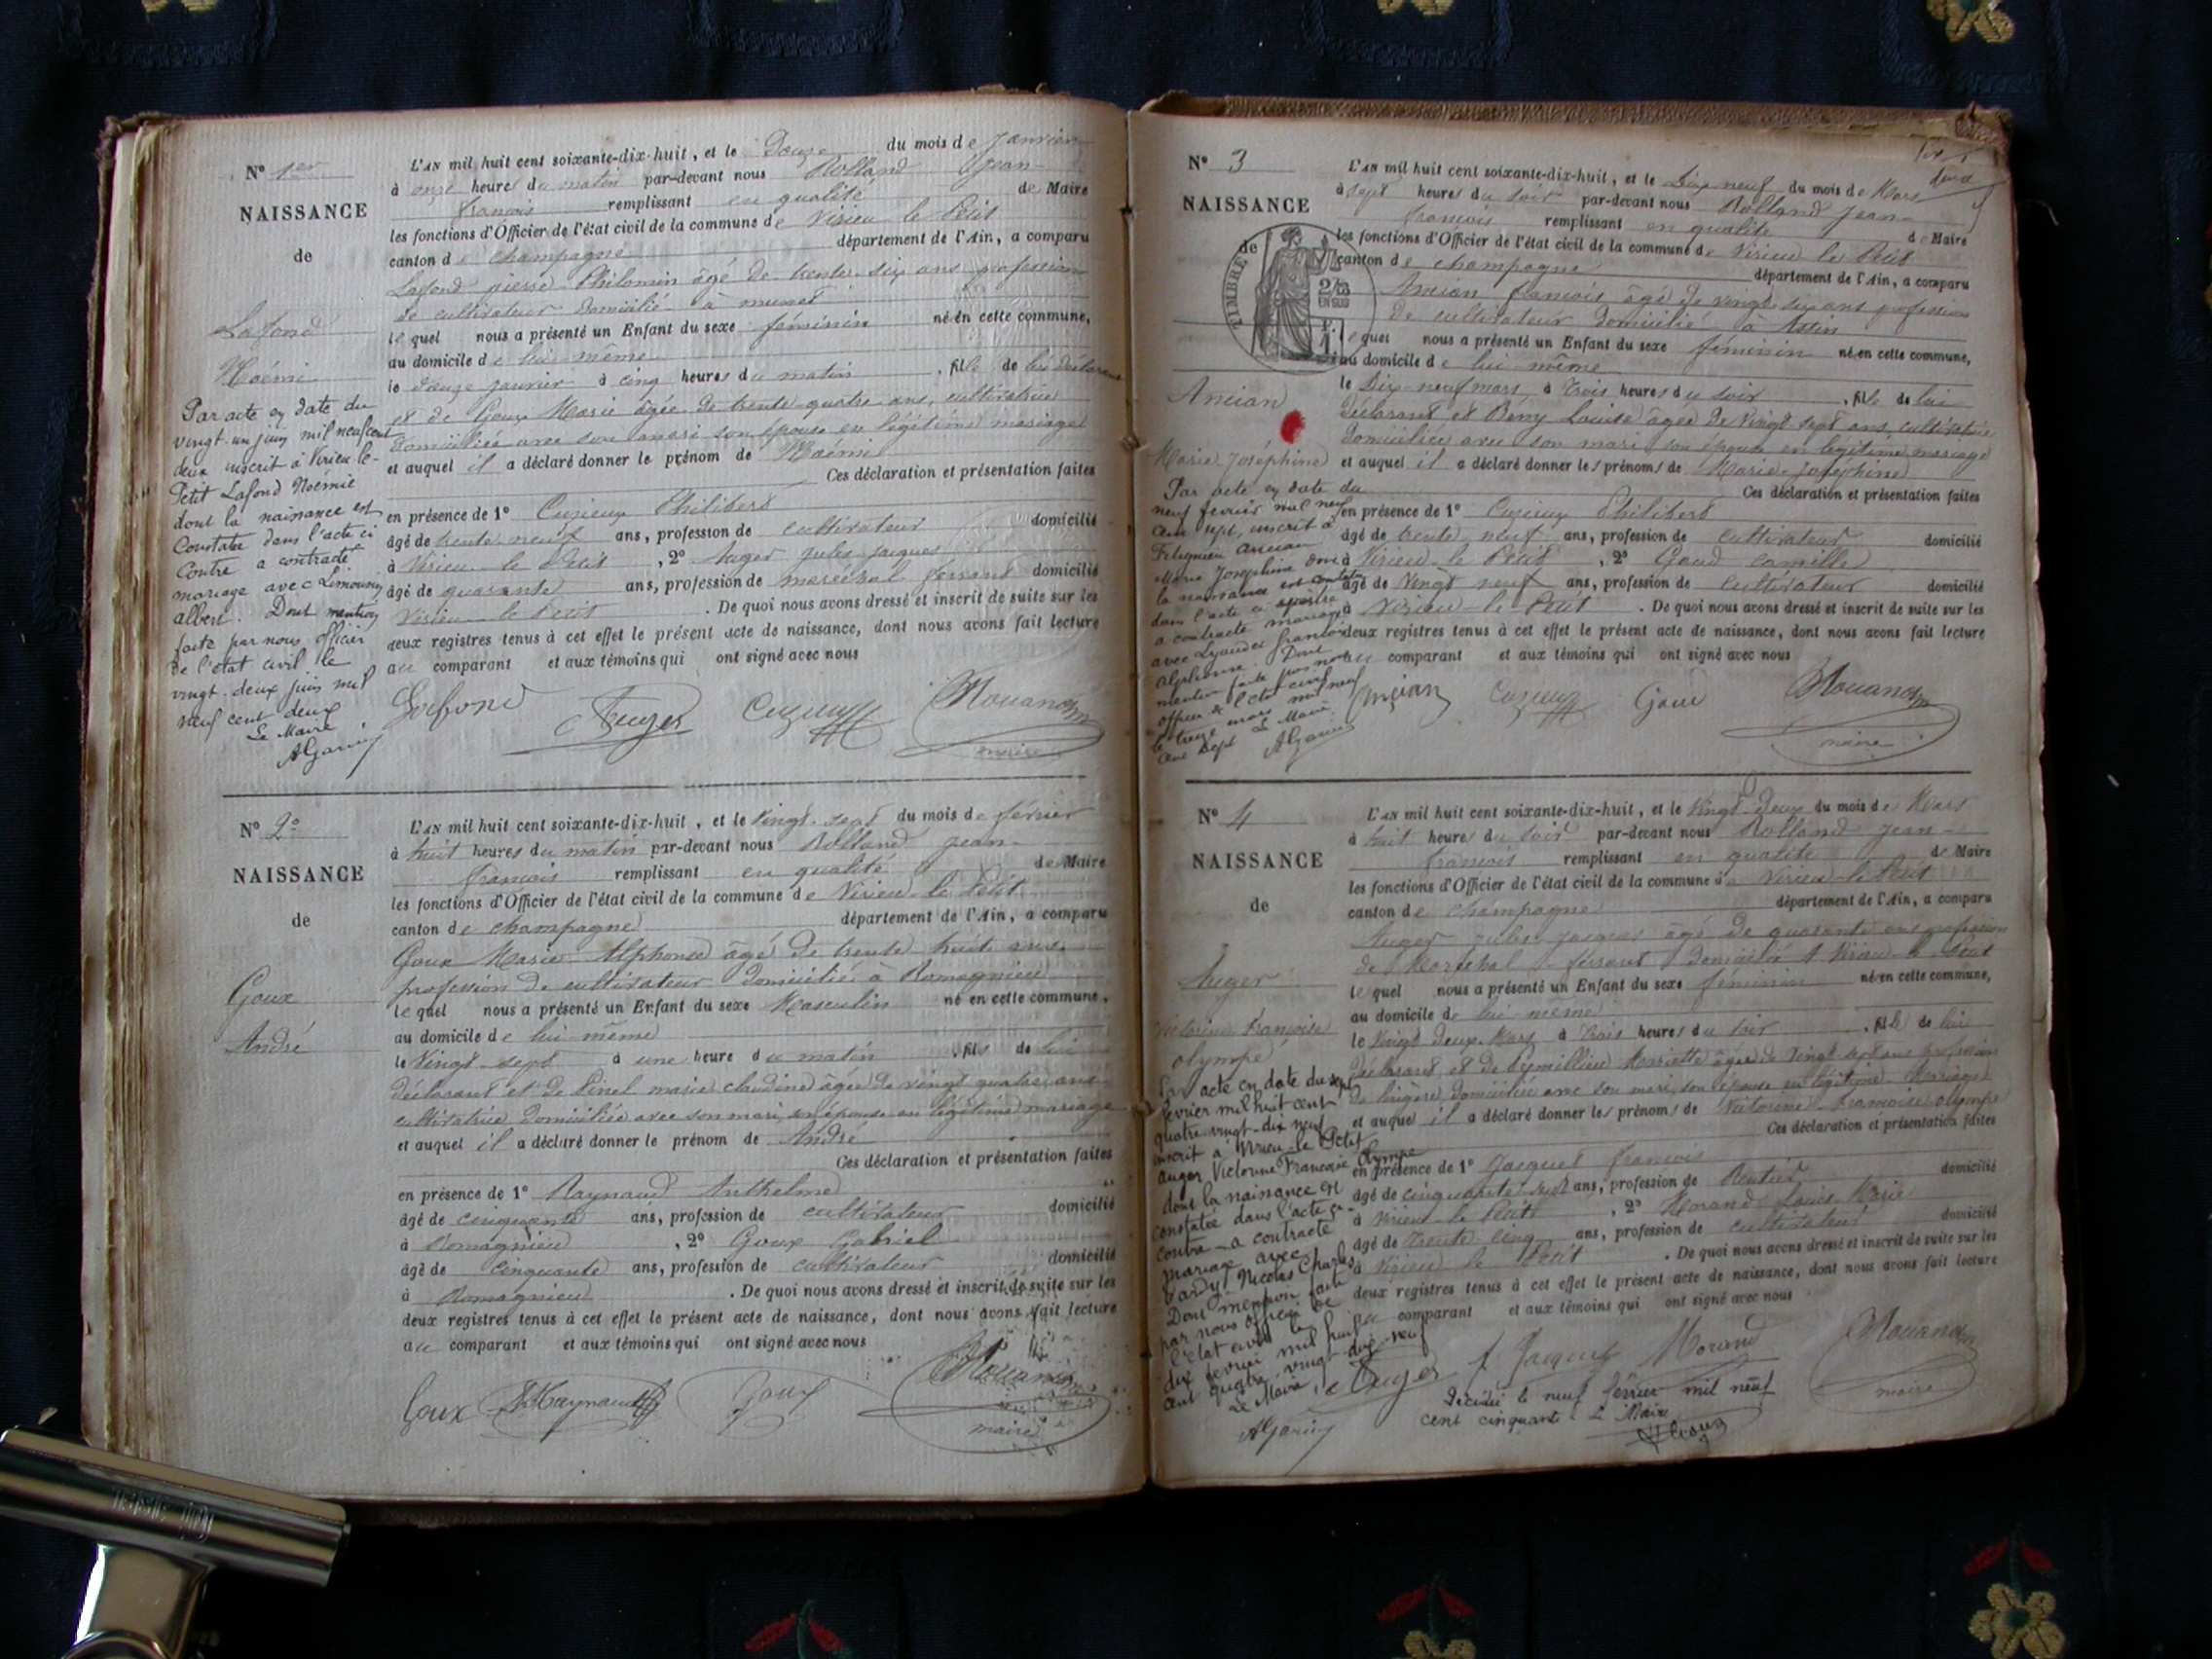 N° 1er
NAISSANCE
de
Lafond
Noémi
Par acte en date du
vingt-un juin mil neuf cent
deux inscrit à Virieu le-
Petit Lafond Noémie
dont la naissance est
constatée dans l'acte ci
contre a contracté
mariage avec Limousin
albert. Dont mention
faite par nous officier
de l'état civil le
vingt-deux juin mil
neuf cent deux
Le Maire
L'AN mil huit cent soixante-dix-huit, et le Douze du mois de Janvier
à onze heures du matin par-devant nous Rolland Jean-
francois remplissant en qualité de Maire
les fonctions d'Officier de l'état civil de la commune de Virieu le Petit
canton de champagne département de l'Ain, a comparu
Lafond pierre Philomin âgé de trente-six ans profession
de cultivateur domicilié à munet
lequel nous a présenté un Enfant du sexe féminin né en cette commune,
au domicile de lui-même
le douze janvier à cinq heures du matin, fille de lui déclarant
et de Goux Marie âgée de trente-quatre ans, cultivatrice
domiciliée avec son mari son épouse en légitime mariage
et auquel il a déclaré donner le prénom de Noémi
Ces déclaration et présentation faites
en présence de 1° Cuzieux Philibert
âgé de trente neuf ans, profession de cultivateur domicilié
à Virieu-le Petit, 2° Auger jules-jacques
âgé de quarante ans, profession de maréchal ferrant domicilié
Virieu-le Petit. De quoi nous avons dressé et inscrit de suite sur les
deux registres tenus à cet effet le présent acte de naissance, dont nous avons fait lecture
au comparant et aux témoins qui ont signé avec nous
Lafond Auger Cuzieux
maire
N° 2°
NAISSANCE
de
Goux
André
L'AN mil huit cent soixante-dix-huit, et le Vingt-sept du mois de février
à huit heures du matin par-devant nous Rolland Jean-
francois remplissant en qualité de Maire
les fonctions d'Officier de l'état civil de la commune de Virieu-le Petit
canton de champagne département de l'Ain, a comparu
Goux Marie-Alphonse âgé de trente huit ans
profession de cultivateur domicilié à Romagnieu
lequel nous a présenté un Enfant du sexe Masculin né en cette commune,
au domicile de lui-même
le Vingt-sept à une heure du matin, fils de lui
déclarant et de Pinel marie claudine âgée de vingt quatre ans
cultivatrice domiciliée avec son mari, son épouse en légitime mariage
et auquel il a déclaré donner le prénom de André
Ces déclaration et présentation faites
en présence de 1° Raynaud Anthelme
âgé de cinquante ans, profession de cultivateur domicilié
à Romagnieu, 2° Goux Gabriel
âgé de cinquante ans, profession de cultivateur domicilié
à Romagnieu. De quoi nous avons dressé et inscrit de suite sur les
deux registres tenus à cet effet le présent acte de naissance, dont nous avons fait lecture
au comparant et aux témoins qui ont signé avec nous
Goux Raynaud Goux
maire
deux
N° 3
NAISSANCE
de
TIMBRE
Ancian
Marie Joséphine
Par acte en date du
neuf février mil neuf
cent sept, inscrit à
ancian
Marie Joséphine dont
la naissance est constatée
dans l'acte ci
a contracté mariage
avec francois
alphonse. Dont
mention faite par nous
officier de l'état civil
le treize mars mil neuf
cent sept Le Maire
L'AN mil huit cent soixante-dix-huit, et le Dix-neuf du mois de Mars
à sept heures du soir par-devant nous Rolland Jean-
francois remplissant en qualité de Maire
les fonctions d'Officier de l'état civil de la commune de Virieu le Petit
canton de champagne département de l'Ain, a comparu
Ancian francois âgé de vingt-six ans profession
de cultivateur domicilié à Assin
lequel nous a présenté un Enfant du sexe féminin né en cette commune,
au domicile de lui-même
le Dix-neuf mars à trois heures du soir, fille de lui
déclarant et Bény Louise âgée de Vingt-sept ans, cultivatrice
domiciliée avec son mari son épouse en légitime mariage
et auquel il a déclaré donner les prénoms de Marie-Josephine
Ces déclaration et présentation faites
en présence de 1° Cuzieux Philibert
âgé de trente neuf ans, profession de cultivateur domicilié
à Virieu le Petit, 2° Goud camille
âgé de Vingt neuf ans, profession de cultivateur domicilié
à Virieu-le Petit. De quoi nous avons dressé et inscrit de suite sur les
deux registres tenus à cet effet le présent acte de naissance, dont nous avons fait lecture
au comparant et aux témoins qui ont signé avec nous
Ancian Cuzieux Goud
maire
N° 4
NAISSANCE
de
Auger
Victorine Françoise
olympe
Par acte en date du sept
février mil huit cent
quatre-vingt-dix neuf
inscrit à Virieu-le Petit
auger Victorine Francoise Olympe
dont la naissance est
constatée dans l'acte ci-
contre a contracté
mariage avec
Nicolas Charles
Dont mention faite
par nous officier de
l'état civil le
dix février mil huit
cent quatre vingt-dix-neuf
Le Maire
L'AN mil huit cent soixante-dix-huit, et le Vingt-Deux du mois de Mars
à huit heures du soir par-devant nous Rolland Jean-
francois remplissant en qualité de Maire
les fonctions d'Officier de l'état civil de la commune de Virieu-le Petit
canton de champagne département de l'Ain, a comparu
Auger jules-jacques âgé de quarante ans profession
de Maréchal-ferrant domicilié à Virieu-le Petit
lequel nous a présenté un Enfant du sexe féminin né en cette commune,
au domicile de lui-même
le Vingt-Deux Mars à trois heures du soir, fille de lui
déclarant, et de Henriette âgée de Vingt sept ans profession
de lingère, domiciliée avec son mari, son épouse en légitime Mariage
et auquel il a déclaré donner les prénoms de Victorine-Francoise olympe
Ces déclaration et présentation faites
en présence de 1° Jacquet francois
âgé de cinquante sept ans, profession de Rentier domicilié
à Virieu-le Petit, 2° Morand Louis-Marie
âgé de Trente cinq ans, profession de cultivateur domicilié
à Virieu le Petit. De quoi nous avons dressé et inscrit de suite sur les
deux registres tenus à cet effet le présent acte de naissance, dont nous avons fait lecture
au comparant et aux témoins qui ont signé avec nous
Auger f. Jacquet Morand
maire
Décédée le neuf février mil neuf
cent cinquante Le Maire